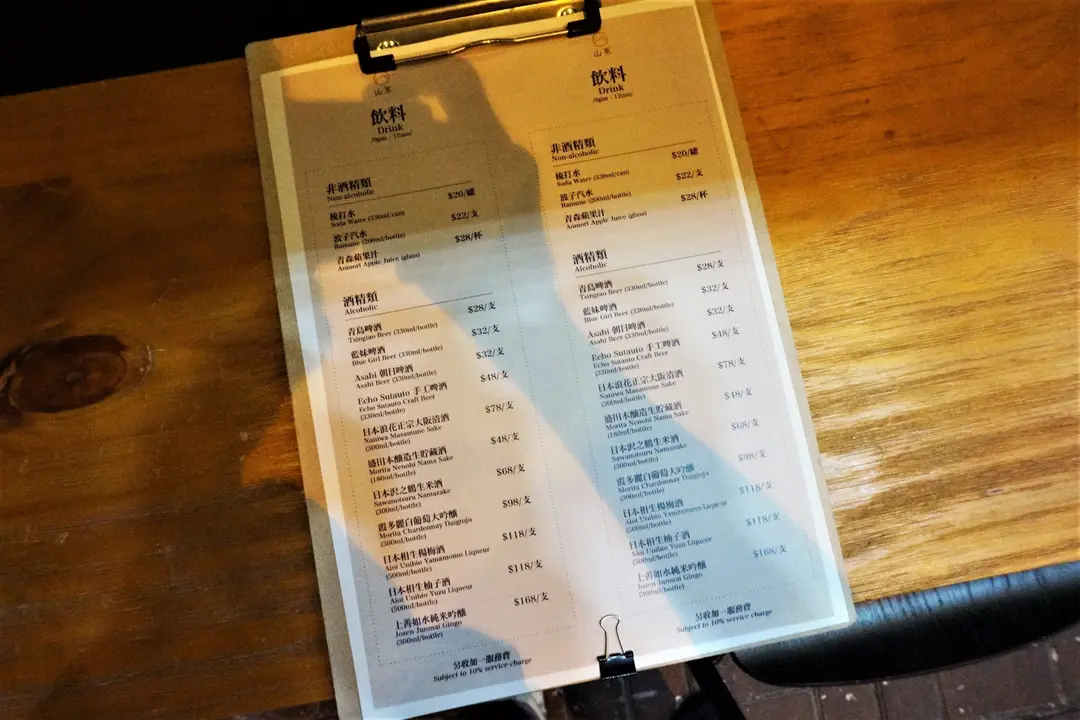 山家
飲料
Drink
/6pm - 12am/
非酒精類
Non-alcoholic
梳打水 $20/罐
Soda Water (330ml/can)
波子汽水 $22/支
Ramune (200ml/bottle)
青森蘋果汁 $28/杯
Aomori Apple Juice (glass)
酒精類
Alcoholic
青島啤酒 $28/支
Tsingtao Beer (330ml/bottle)
藍妹啤酒 $32/支
Blue Girl Beer (330ml/bottle)
Asahi 朝日啤酒 $32/支
Asahi Beer (330ml/bottle)
Echo Sutauto 手工啤酒 $48/支
Echo Sutauto Craft Beer
(330ml/bottle)
日本浪花正宗大阪清酒 $78/支
Naniwa Masamune Sake
(300ml/bottle)
盛田本釀造生貯藏酒 $48/支
Morita Nenohi Nama Sake
(180ml/bottle)
日本沢之鶴生米酒 $68/支
Sawanotsuru Namazake
(300ml/bottle)
霞多麗白葡萄大吟釀 $98/支
Morita Chardonnay Daiginjo
(300ml/bottle)
日本相生楊梅酒 $118/支
Aioi Unibio Yamamomo Liqueur
(500ml/bottle)
日本相生柚子酒 $118/支
Aioi Unibio Yuzu Liqueur
(500ml/bottle)
上善如水純米吟釀 $168/支
Jozen Junmai Gingo
(300ml/bottle)
另收加一服務費
Subject to 10% service charge
山家
飲料
Drink
/6pm - 12am/
非酒精類
Non-alcoholic
梳打水 $20/罐
Soda Water (330ml/can)
波子汽水 $22/支
Ramune (200ml/bottle)
青森蘋果汁 $28/杯
Aomori Apple Juice (glass)
酒精類
Alcoholic
青島啤酒 $28/支
Tsingtao Beer (330ml/bottle)
藍妹啤酒 $32/支
Blue Girl Beer (330ml/bottle)
Asahi 朝日啤酒 $32/支
Asahi Beer (330ml/bottle)
Echo Sutauto 手工啤酒 $48/支
Echo Sutauto Craft Beer
(330ml/bottle)
日本浪花正宗大阪清酒 $78/支
Naniwa Masamune Sake
(300ml/bottle)
盛田本釀造生貯藏酒 $48/支
Morita Nenohi Nama Sake
(180ml/bottle)
日本沢之鶴生米酒 $68/支
Sawanotsuru Namazake
(300ml/bottle)
霞多麗白葡萄大吟釀 $98/支
Morita Chardonnay Daiginjo
(300ml/bottle)
日本相生楊梅酒 $118/支
Aioi Unibio Yamamomo Liqueur
(500ml/bottle)
日本相生柚子酒 $118/支
Aioi Unibio Yuzu Liqueur
(500ml/bottle)
上善如水純米吟釀 $168/支
Jozen Junmai Gingo
(300ml/bottle)
另收加一服務費
Subject to 10% service charge